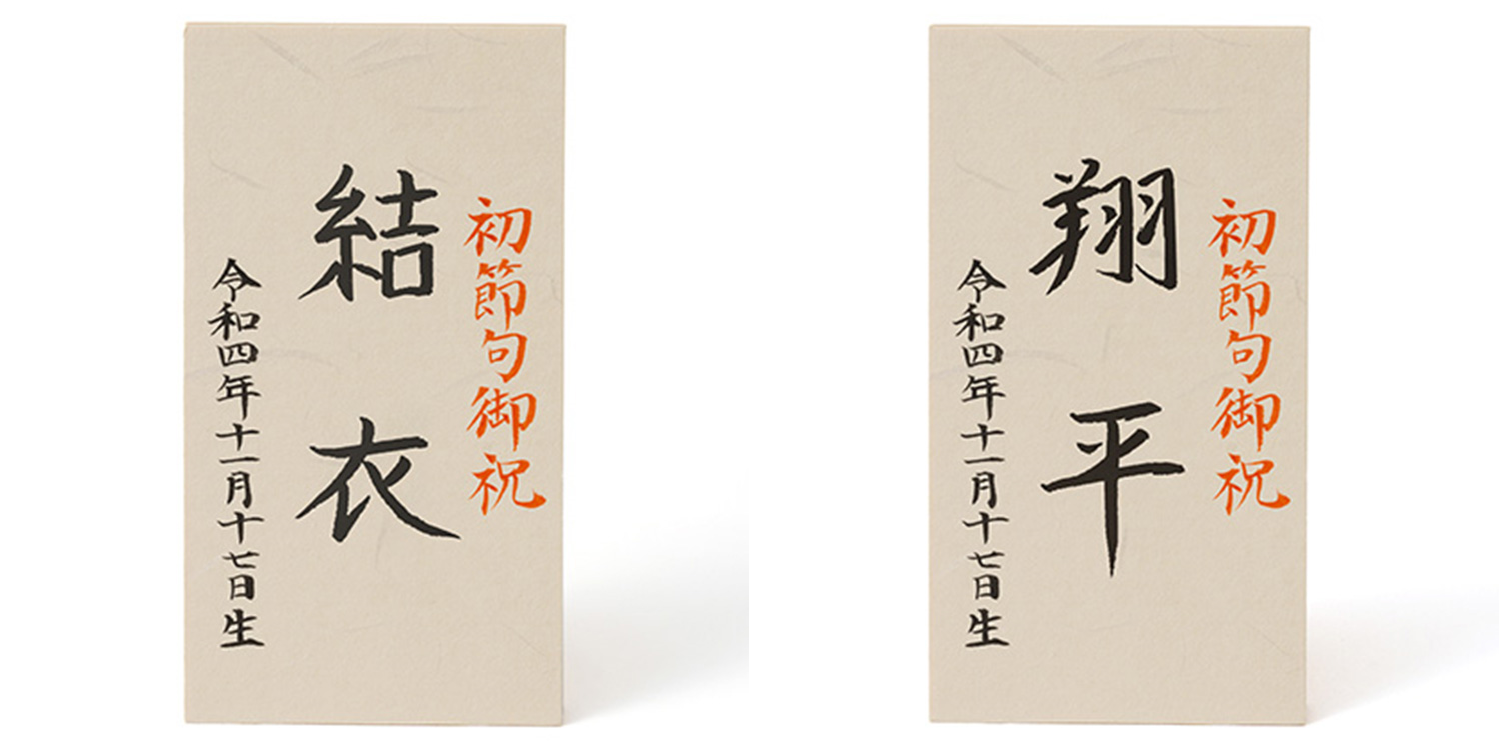 初節句御祝
結衣
令和四年十一月十七日生
初節句御祝
翔平
令和四年十一月十七日生